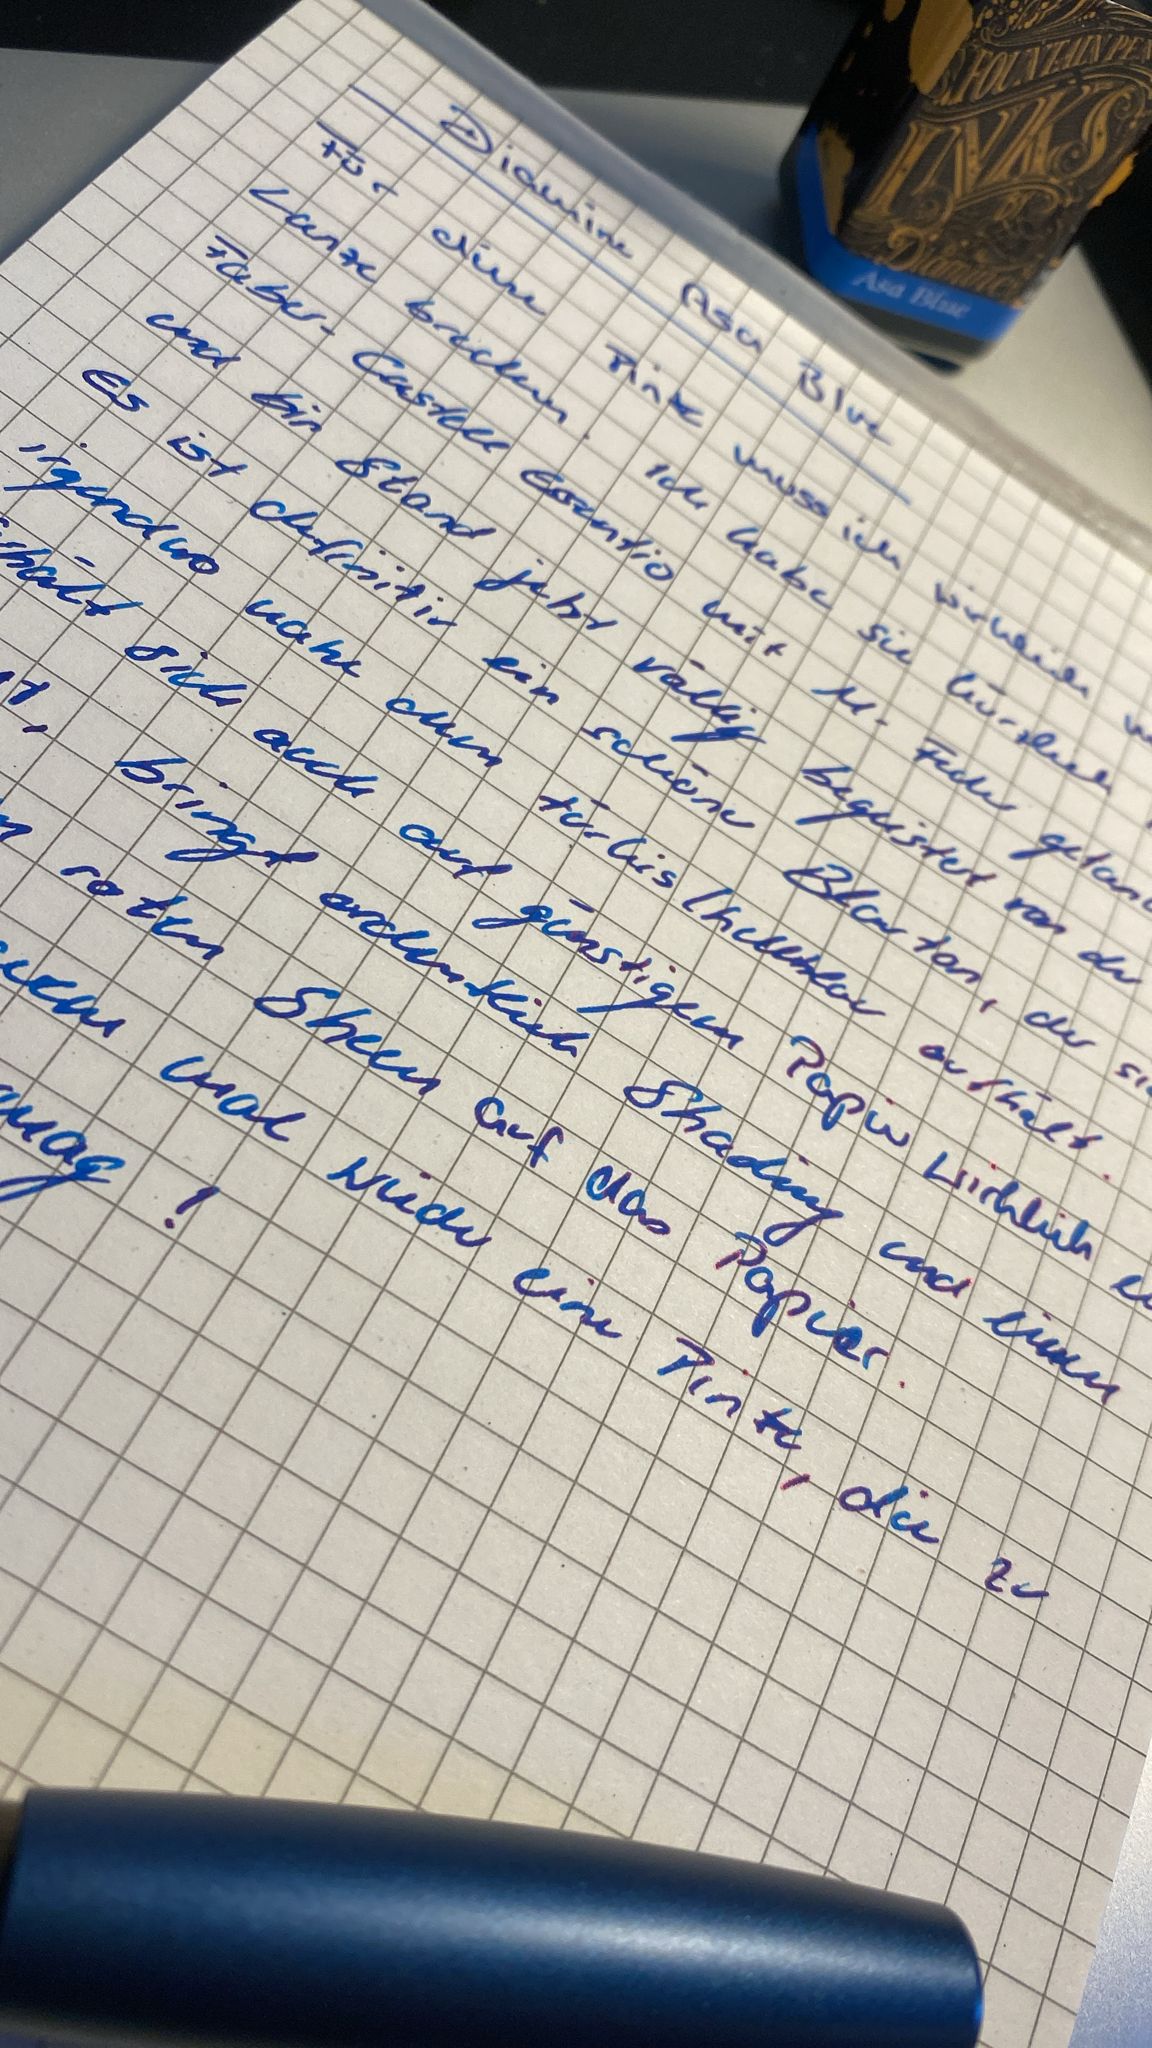 Diamine Asa Blue
Für diese Tinte muss ich wirklich
Lanze brechen. Ich habe sie kürzlich
Faber-Castell Essentio mit M-Feder
und bin Stand jetzt völlig begeistert von der
Es ist definitiv ein schöner Blauton, der
irgendwo nahe dem türkis/hellblau aufhält.
sich auch auf günstigem Papier wirklich
bringt ordentlich Shading und einen
roten Sheen auf das Papier.
mal wieder eine Tinte, die zu
mag!
FOUNTAIN PEN
INKS
BY
Diamine
Asa Blue